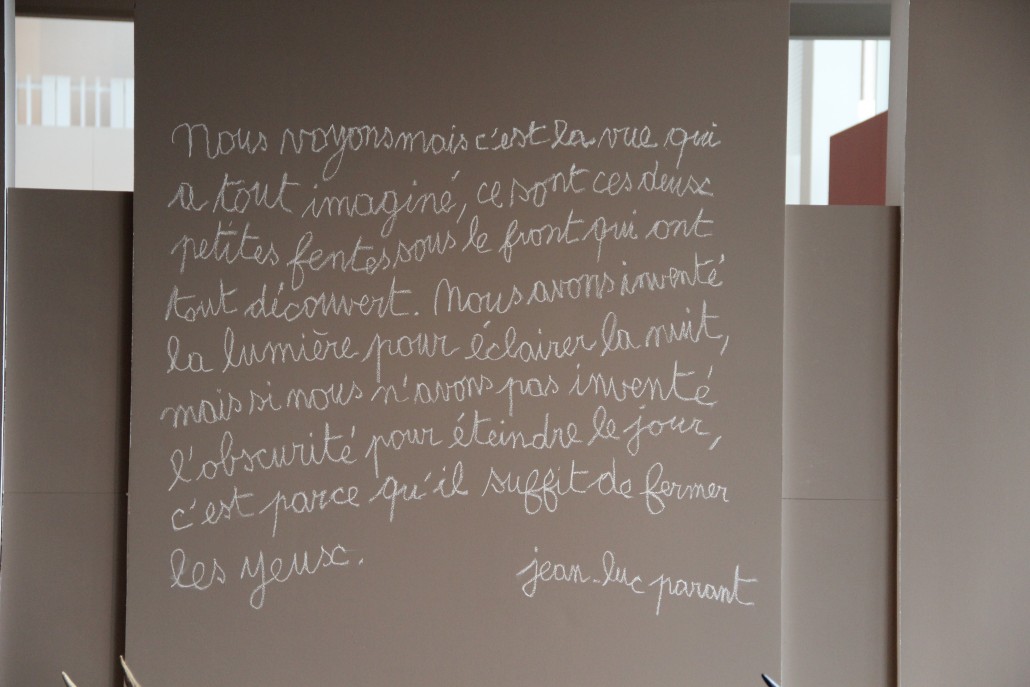 Nous voyons mais c'est la vue qui
a tout imaginé, ce sont ces deux
petites fentes sous le front qui ont
tout découvert. Nous avons inventé
la lumière pour éclairer la nuit,
mais si nous n'avons pas inventé
l'obscurité pour éteindre le jour,
c'est parce qu'il suffit de fermer
les yeux.
jean-luc parant